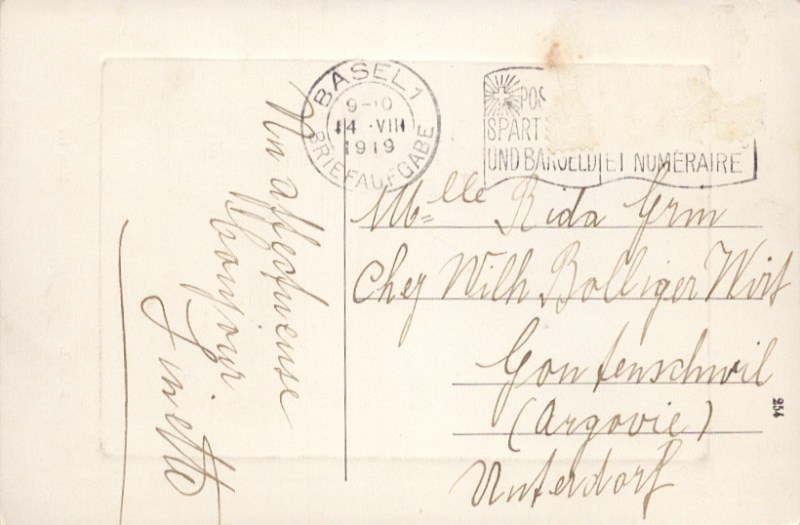 BASEL 1
9-10
14 ·VIII
1919
BRIEFAUFGABE
POS
SPART
UND BARGELD ET NUMÉRAIRE
Un affectueuse
bonjour
Ninette
Mlle Rida Grm
Chez Wilh Bolliger Wirt
Gontenschwil
(Argovie)
Unterdorf
254